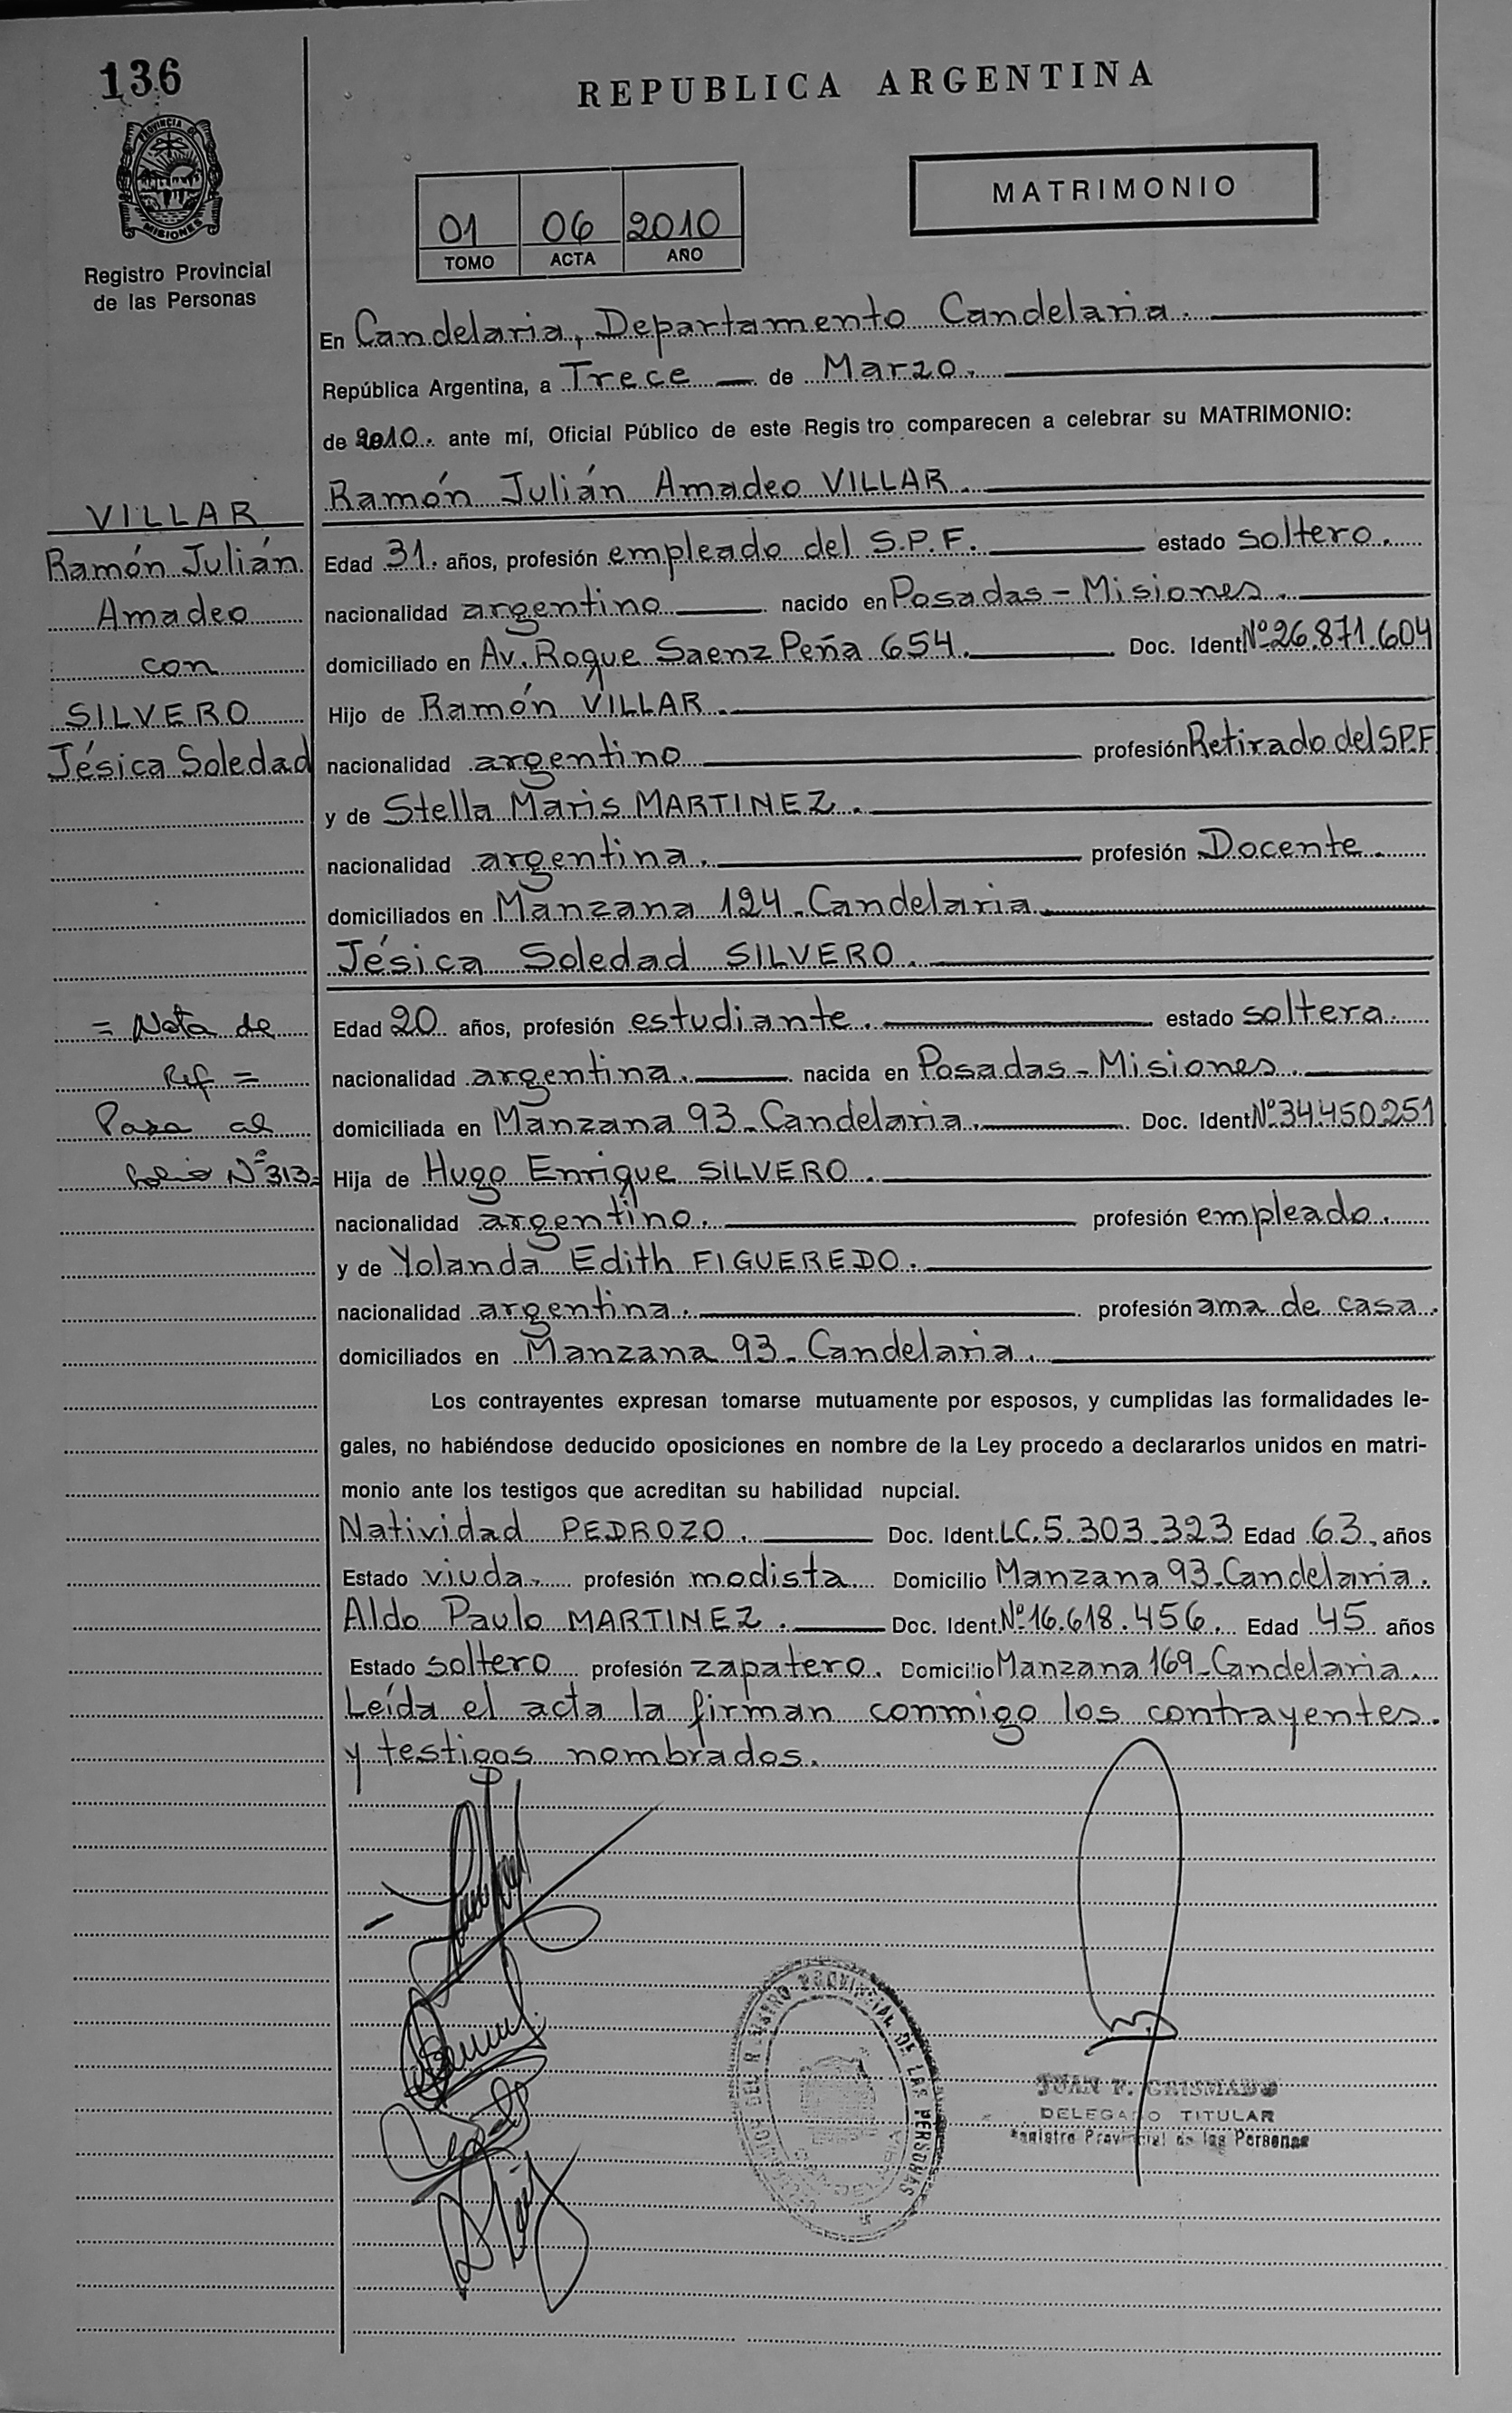 136
REPUBLICA ARGENTINA
PROVINCIA DE
MISIONES
Registro Provincial
de las Personas
01 06 2010
TOMO ACTA AÑO
MATRIMONIO
En Candelaria, Departamento Candelaria.
República Argentina, a Trece de Marzo.
de 2010. ante mí, Oficial Público de este Regis tro comparecen a celebrar su MATRIMONIO:
VILLAR
Ramón Julián
Amadeo
con
SILVERO
Jésica Soledad
= Nota de
Ref =
Pasa al
Folio Nº 313=
Ramón Julián Amadeo VILLAR.
Edad 31. años, profesión empleado del S.P.F. estado soltero.
nacionalidad argentino nacido en Posadas - Misiones.
domiciliado en Av. Roque Saenz Peña 654. Doc. Ident Nº 26.871.604
Hijo de Ramón VILLAR.
nacionalidad argentino profesión Retirado del S.P.F
y de Stella Maris MARTINEZ.
nacionalidad argentina. profesión Docente.
domiciliados en Manzana 124 - Candelaria
Jésica Soledad SILVERO.
Edad 20 años, profesión estudiante. estado soltera.
nacionalidad argentina. nacida en Posadas - Misiones.
domiciliada en Manzana 93 - Candelaria. Doc. Ident Nº 34.450.251
Hija de Hugo Enrique SILVERO.
nacionalidad argentino. profesión empleado.
y de Yolanda Edith FIGUEREDO.
nacionalidad argentina. profesión ama de casa.
domiciliados en Manzana 93 - Candelaria.
Los contrayentes expresan tomarse mutuamente por esposos, y cumplidas las formalidades le-
gales, no habiéndose deducido oposiciones en nombre de la Ley procedo a declararlos unidos en matri-
monio ante los testigos que acreditan su habilidad nupcial.
Natividad PEDROZO. Doc. Ident. LC. 5.303.323 Edad 63, años
Estado viuda, profesión modista Domicilio Manzana 93 - Candelaria.
Aldo Paulo MARTINEZ. Doc. Ident. Nº 16.618.456. Edad 45 años
Estado soltero profesión zapatero. Domicilio Manzana 169 - Candelaria.
Leída el acta la firman conmigo los contrayentes
y testigos nombrados.
PROVINCIAL DE LAS PERSONAS
JUAN F. CRISMADO
DELEGADO TITULAR
Registro Provincial de las Personas